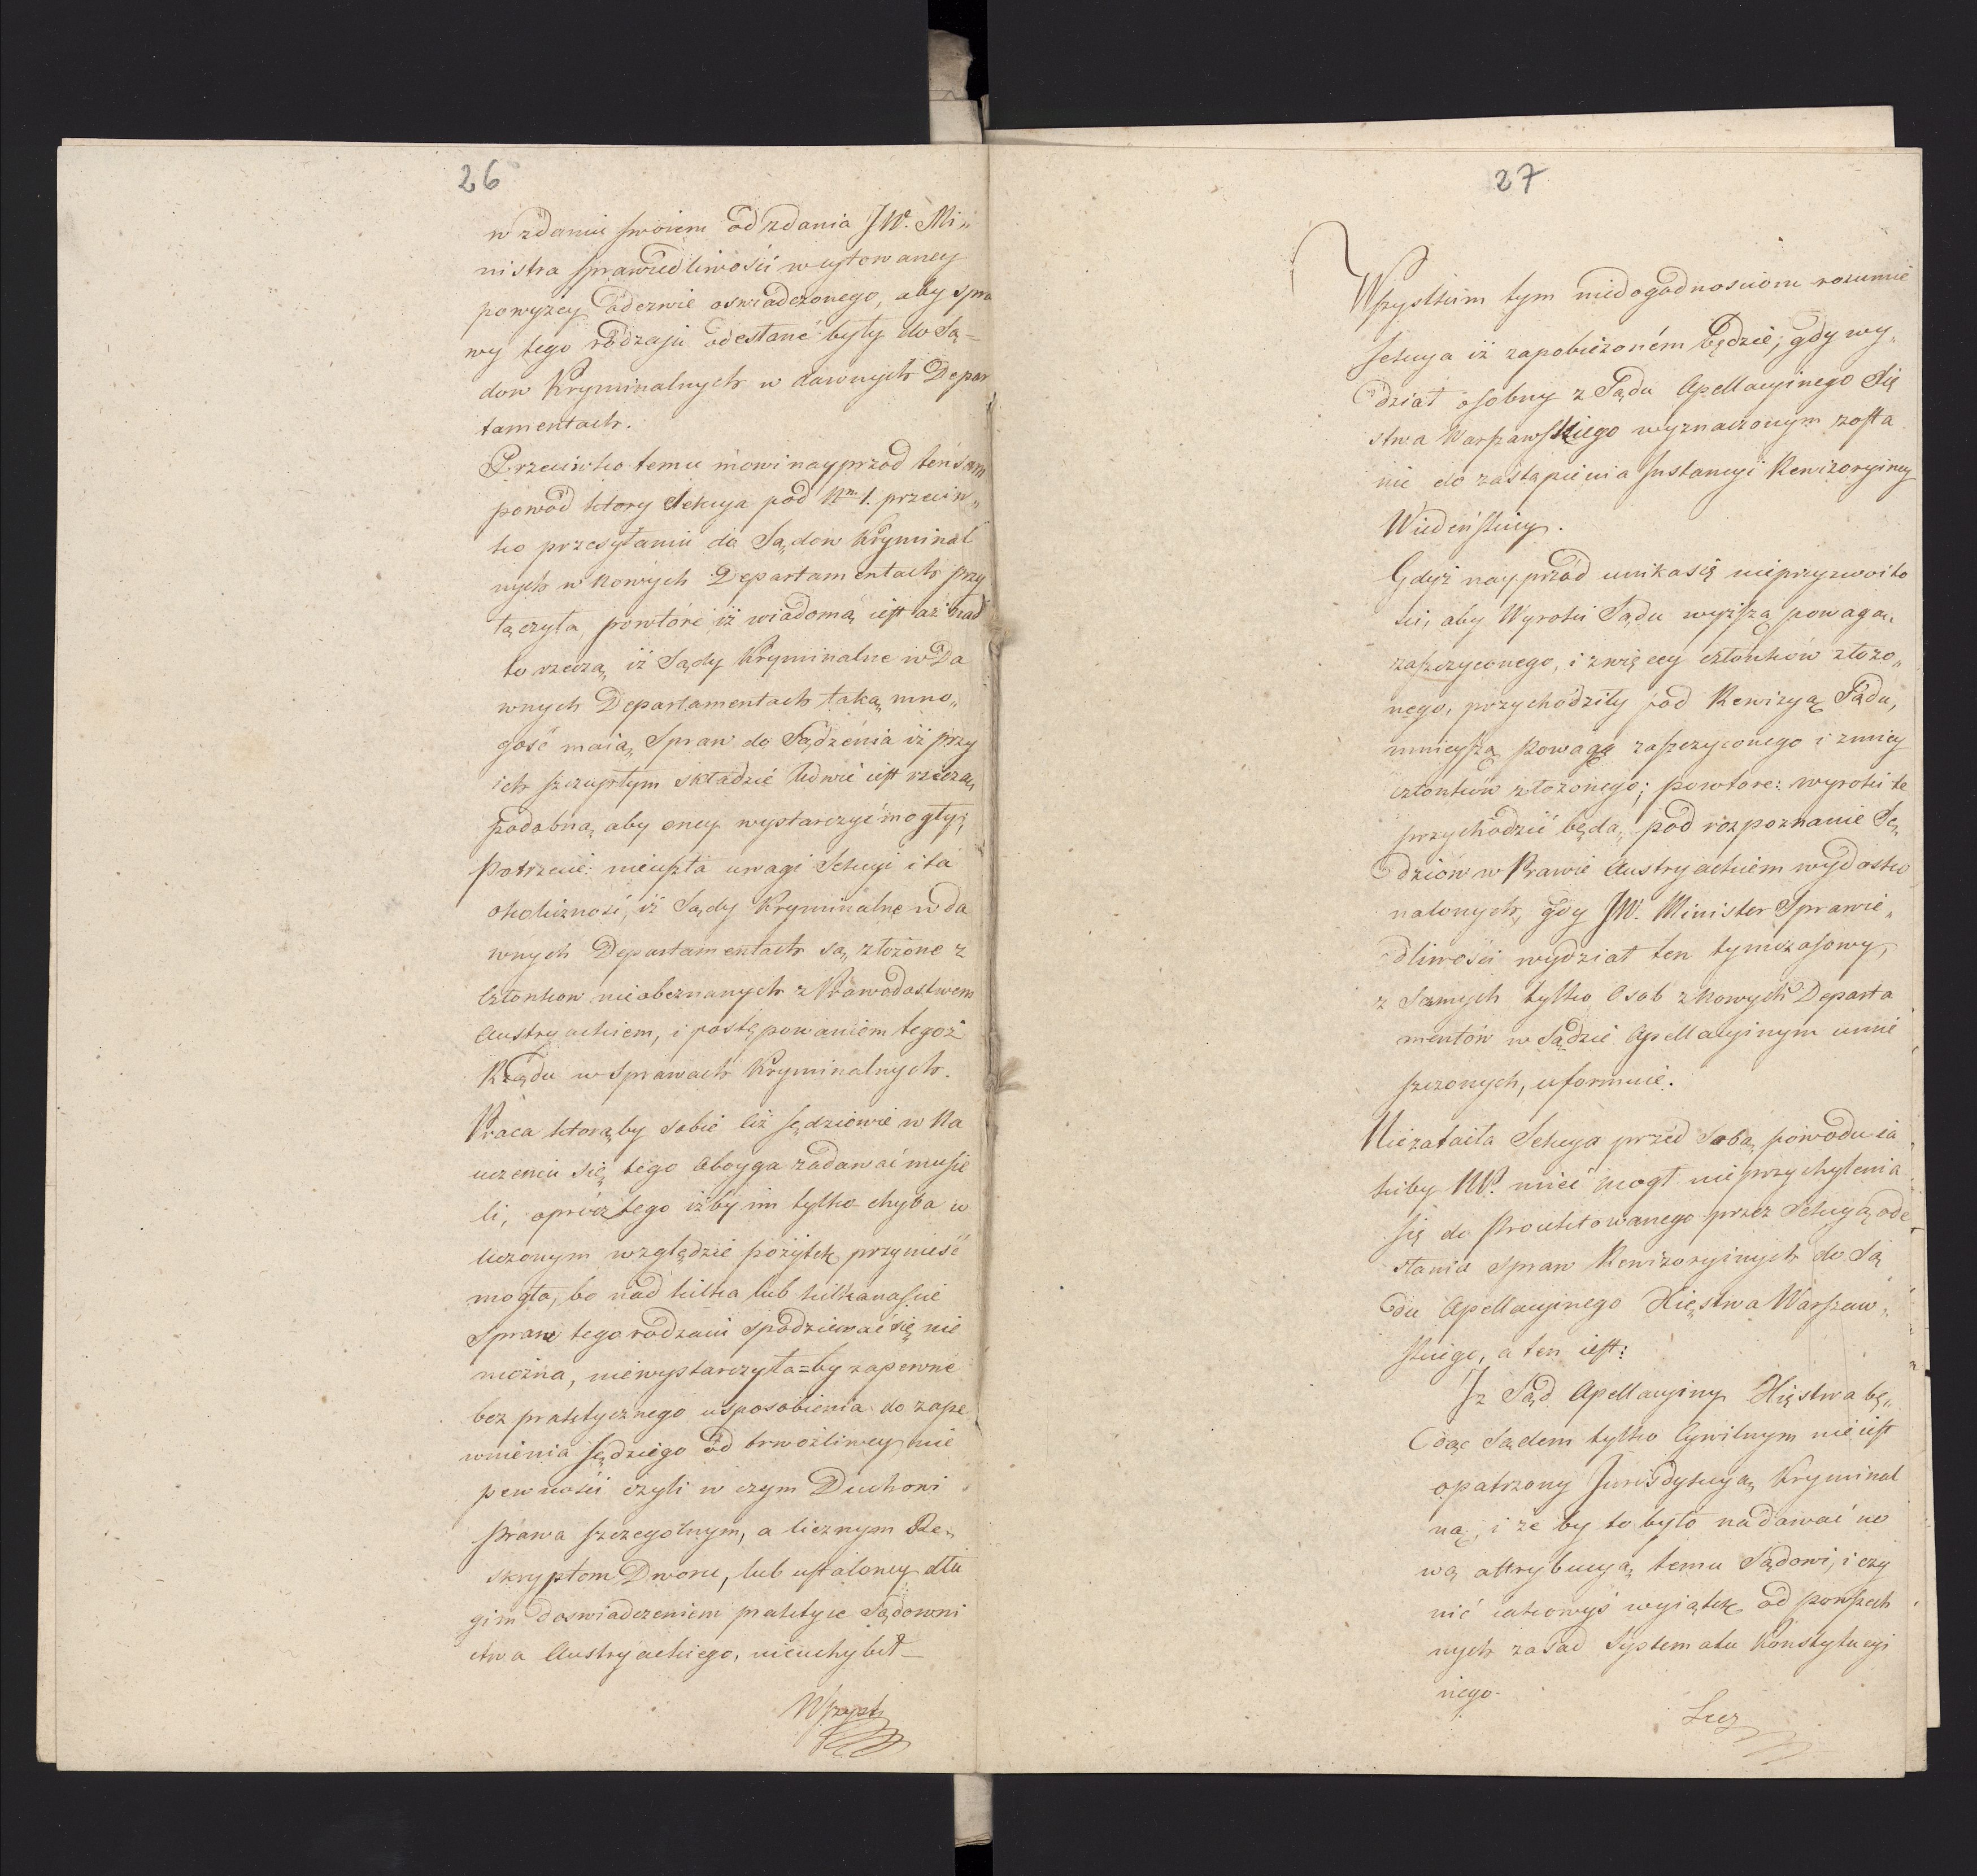 26
w zdaniu swoiem od zdania JW. Mi„
nistra sprawiedliwości w cytowaney
powyżey odezwie oswiadczonego, aby spra
wy tego rodzaju odestane były do Są=
dow Kryminalnych w dawnych Depar
tamentach.
Przeciwko temu mowi nayprzod ten sam
powod ktory Sekcya pod Nrm 1. przeciw„
ko przesyłaniu do Sądow Kryminal
nych w nowych Departamentach przy
tączyła, powtóre iż wiadomą iest aż nad
to rzeczą, iż Sądy Kryminalne w Da
wnych Departamentach taką mno„
gość maią Spraw do Sądzenia iż przy
ich szczupłym składzie ledwie iest rzeczą
podobną, aby oney wystarczyć mogły;
Potrzecie: nieuszła uwagi Sekcyi i ta
okoliczność, iż Sądy Kryminalne w da
wnych Departamentach są złożone z
Członkow nieobeznanych z Prawodastwem
Austryackiem, i postępowaniem tegoż
Rządu w Sprawach Kryminalnych.
Praca którąby sobie ciż sędziowie w Na
uczeniu się tego oboyga zadawać musie
li, oprócz tego iżby im tylko chyba w
uczonym względzie pożytek przynieść
mogła, bo nad kilka lub kilkanaście
Spraw tego rodzaiu spodziewać się nie
można, niewystarczyła=by zapewne
bez praktycznego usposobienia do zape
wnienia sędziego od trwożliwey nie
pewności czyli w czym Duchowi
Prawa szczegolnym, a licznym Re„
skryptom Dworu, lub ustaloney dłu
gim doswiadczeniem praktyce Sądowni
ctwa Austryackiego, nieuchybił_
Wszyst
27
Wszystkim tym niedogodnosciom rozumie
Sekcya iż zapobieżoném będzie; gdy wy„
dział osobny z Sądu Apellacyinego Xię
stwa Warszawskiego wyznaczonym zosta
nie do zastąpienia Instancyi Rewizoryiney
Wiedeńskiey.
Gdyż nayprzód unika się nieprzyzwoito
ści, aby Wyroki Sądu wyższą powagą„
zaszczyconego, i z więcey członków złożo„
nego, przychodziły pod Rewizyą Sądu,
mnieyszą powagą zaszczyconego i z mniey
członków złożonego; powtore: wyroki te
przychodzić będą, pod rozpoznanie Sę
dziow w Prawie Austryackiem wydosko
nalonych, gdy JW. Minister Sprawie„
dliwości wydział ten tymczasowy,
z Samych tylko Osob z nowych Departa
mentów w Sądzie Apellacyinym umie
szczonych, uformuie.
Niezataiła Sekcya przed sobą, powodu ia
kiby JW. mieć mogł nieprzychylenia
się do Proiektowanego przez Sekcyą ode
słania Spraw Rewizoryinych do Są
du Apellacyinego Xięstwa Warszaw„
skiego, a ten iest:
Iż Sąd Apellacyiny Xięstwa bę„
dąc Sądem tylko Cywilnym nie iest
opatrzony Jurisdykcyą Kryminal
ną, i że by to było nadawać no
wą attrybucyą temu Sądowi, i czy
nić iakowyś wyiątek od powszech
nych zasad Systematu Konstytucyi
nego.
Lecz